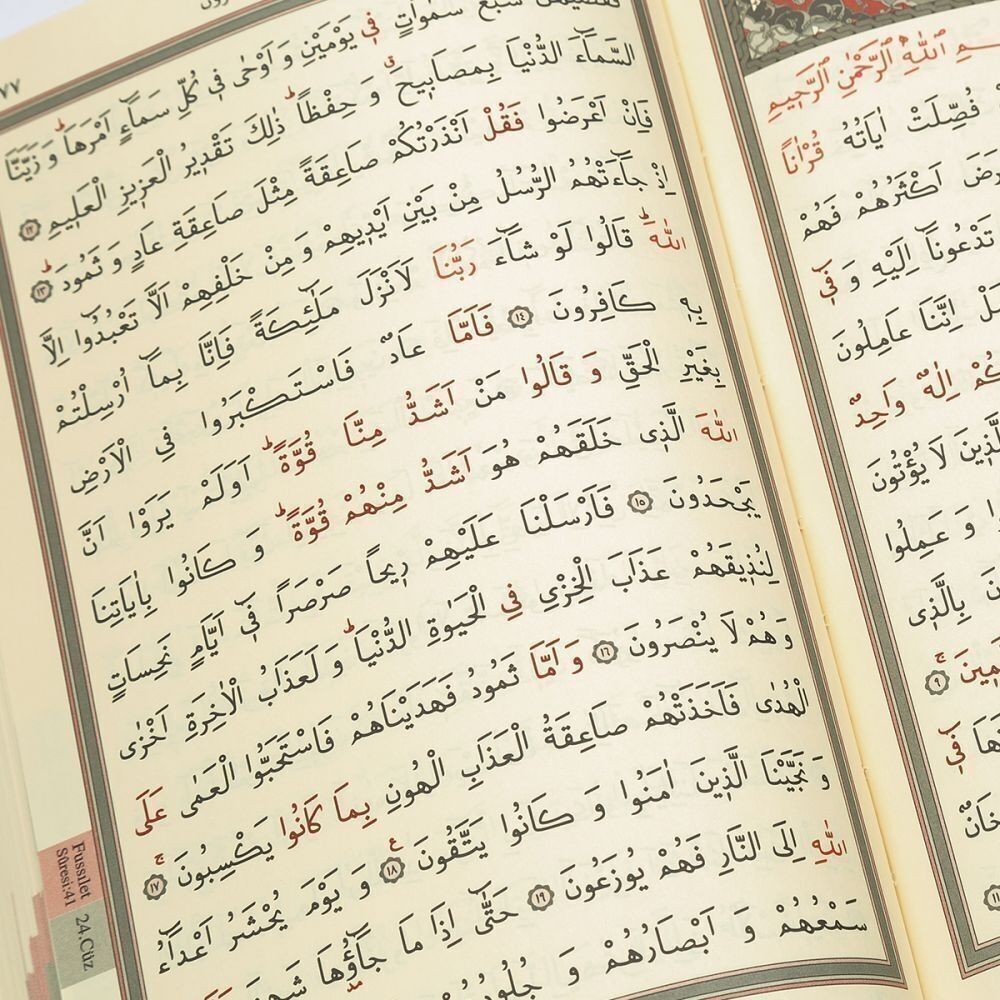 ٧٧
سَبْعَ سَمٰوَاتٍ فٖى يَوْمَيْنِ وَ اَوْحٰى فٖى كُلِّ سَمَٓاءٍ اَمْرَهَاۜ وَ زَيَّنَّا
السَّمَٓاءَ الدُّنْيَا بِمَصَابٖيحَۗ وَ حِفْظاًۜ ذٰلِكَ تَقْدٖيرُ الْعَزٖيزِ الْعَلٖيمِ ﴿١٢﴾
فَاِنْ اَعْرَضُوا فَقُلْ اَنْذَرْتُكُمْ صَاعِقَةً مِثْلَ صَاعِقَةِ عَادٍ وَ ثَمُودَۜ ﴿١٣﴾
اِذْ جَٓاءَتْهُمُ الرُّسُلُ مِنْ بَيْنِ اَيْدٖيهِمْ وَ مِنْ خَلْفِهِمْ اَلَّا تَعْبُدُٓوا اِلَّا
اللّٰهَۜ قَالُوا لَوْ شَٓاءَ رَبُّنَا لَاَنْزَلَ مَلٰٓئِكَةً فَاِنَّا بِمَٓا اُرْسِلْتُمْ
بِهٖ كَافِرُونَ ﴿١٤﴾ فَاَمَّا عَادٌ فَاسْتَكْبَرُوا فِى الْاَرْضِ
بِغَيْرِ الْحَقِّ وَ قَالُوا مَنْ اَشَدُّ مِنَّا قُوَّةًۜ اَوَلَمْ يَرَوْا اَنَّ
اللّٰهَ الَّذٖى خَلَقَهُمْ هُوَ اَشَدُّ مِنْهُمْ قُوَّةًۜ وَ كَانُوا بِاٰيَاتِنَا
يَجْحَدُونَ ﴿١٥﴾ فَاَرْسَلْنَا عَلَيْهِمْ رٖيحاً صَرْصَراً فٖٓى اَيَّامٍ نَحِسَاتٍ
لِنُذٖيقَهُمْ عَذَابَ الْخِزْىِ فِى الْحَيٰوةِ الدُّنْيَاۜ وَ لَعَذَابُ الْاٰخِرَةِ اَخْزٰى
وَ هُمْ لَا يُنْصَرُونَ ﴿١٦﴾ وَ اَمَّا ثَمُودُ فَهَدَيْنَاهُمْ فَاسْتَحَبُّوا الْعَمٰى عَلَى
الْهُدٰى فَاَخَذَتْهُمْ صَاعِقَةُ الْعَذَابِ الْهُونِ بِمَا كَانُوا يَكْسِبُونَۚ ﴿١٧﴾
وَ نَجَّيْنَا الَّذٖينَ اٰمَنُوا وَ كَانُوا يَتَّقُونَ ﴿١٨﴾ وَ يَوْمَ يُحْشَرُ اَعْدَٓاءُ
اللّٰهِ اِلَى النَّارِ فَهُمْ يُوزَعُونَ ﴿١٩﴾ حَتّٰٓى اِذَا مَا جَٓاؤُ۫هَا
سَمْعُهُمْ وَ اَبْصَارُهُمْ وَ
Fussılet
Sûresi:41
24.Cüz
اللّٰهِ الرَّحْمٰنِ الرَّحٖيمِ
فُصِّلَتْ اٰيَاتُهُ قُرْاٰناً
اَكْثَرُهُمْ فَهُمْ
تَدْعُونَٓا اِلَيْهِ وَ فٖٓى
اِنَّنَا عَامِلُونَ
اِلٰهٌ وَاحِدٌ
لَا يُؤْتُونَ
وَ عَمِلُوا
بِالَّذٖى
﴿٩﴾
فٖٓى